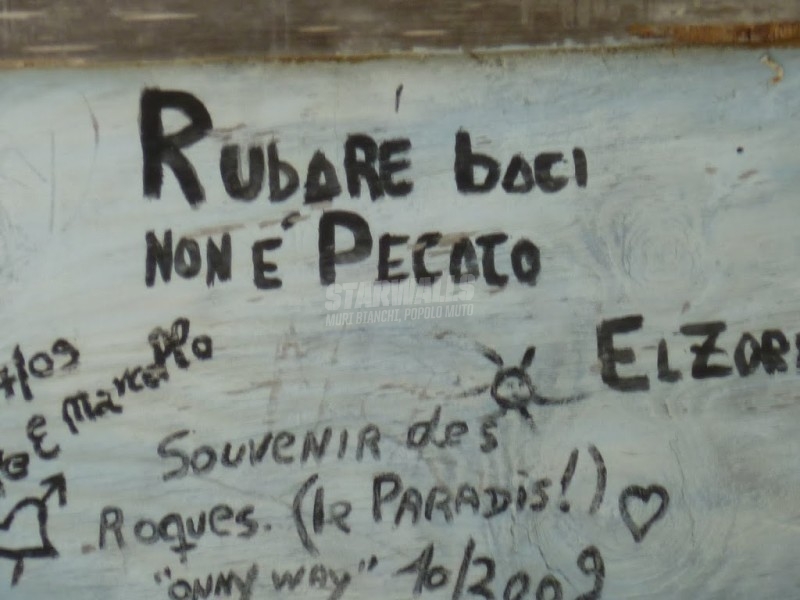 RubaRE baci
NON E' PECATO
STARWALLS
MURI BIANCHI, POPOLO MUTO
7/09
E Marcello
ELZOR
SOUVENIR des
Roques. (le PARADIS!)
"ONNY WAY" 10/2009